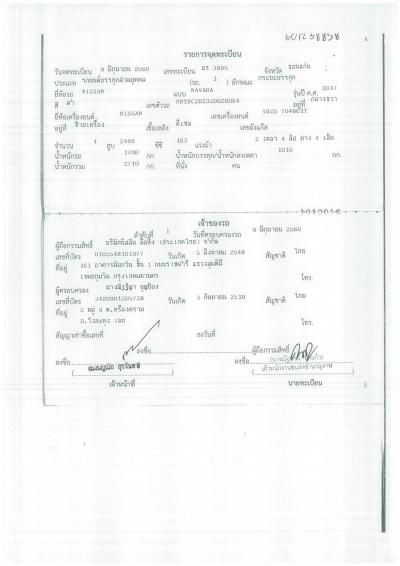 4
รายการจดทะเบียน
วันจดทะเบียน 9 มิถุนายน 2560 เลขทะเบียน 3885 จังหวัด ขอนแก่น
ประเภท รถยนต์บรรทุกส่วนบุคคล (รย. 3 ) ลักษณะ กระบะบรรทุก
ยี่ห้อรถ NISSAN แบบ NAVARA รุ่นปี ค.ศ. 2017
สี ดำ เลขตัวรถ อยู่ที่ กลางขวา
ยี่ห้อเครื่องยนต์ NISSAN เลขเครื่องยนต์
อยู่ที่ ซ้ายเครื่อง เชื้อเพลิง ดีเซล เลขถังแก๊ส
จำนวน 4 สูบ 2488 ซีซี 163 แรงม้า 2 เพลา 4 ล้อ ยาง 4 เส้น
น้ำหนักรถ 1700 กก. น้ำหนักบรรทุก/น้ำหนักลงเพลา 1010 กก.
น้ำหนักรวม 2710 กก. ที่นั่ง คน
เจ้าของรถ
ลำดับที่ 1 วันที่ครอบครองรถ 9 มิถุนายน 2560
ผู้ถือกรรมสิทธิ์ ลีสซิ่ง (ประเทศไทย) จำกัด
เลขที่บัตร 0105548101977 วันเกิด 5 สิงหาคม 2548 สัญชาติ ไทย
ที่อยู่ 161 อาคารนันทวัน ชั้น ถนนราชดำริ แขวงลุมพินี
เขตปทุมวัน กรุงเทพมหานคร โทร.
ผู้ครอบครอง
เลขที่บัตร 3420901205738 วันเกิด 3 กันยายน 2510 สัญชาติ ไทย
ที่อยู่ 2 หมู่ 9 ต.ศรีสงคราม
อ.วังสะพุง เลย โทร.
สัญญาเช่าซื้อเลขที่ ลงวันที่
ลงชื่อ ผู้ถือกรรมสิทธิ์
ลงชื่อ ลงชื่อ
เจ้าหน้าที่ นายทะเบียน 5